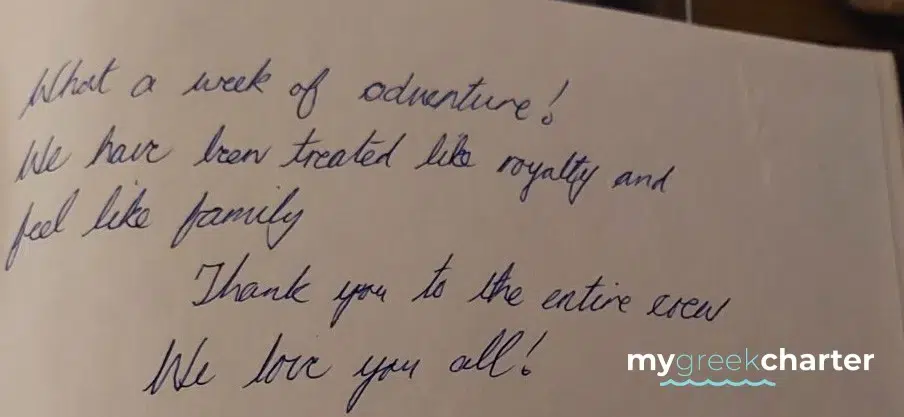 What a week of adventure!
We have been treated like royalty and
feel like family
Thank you to the entire crew
We love you all!
mygreekcharter